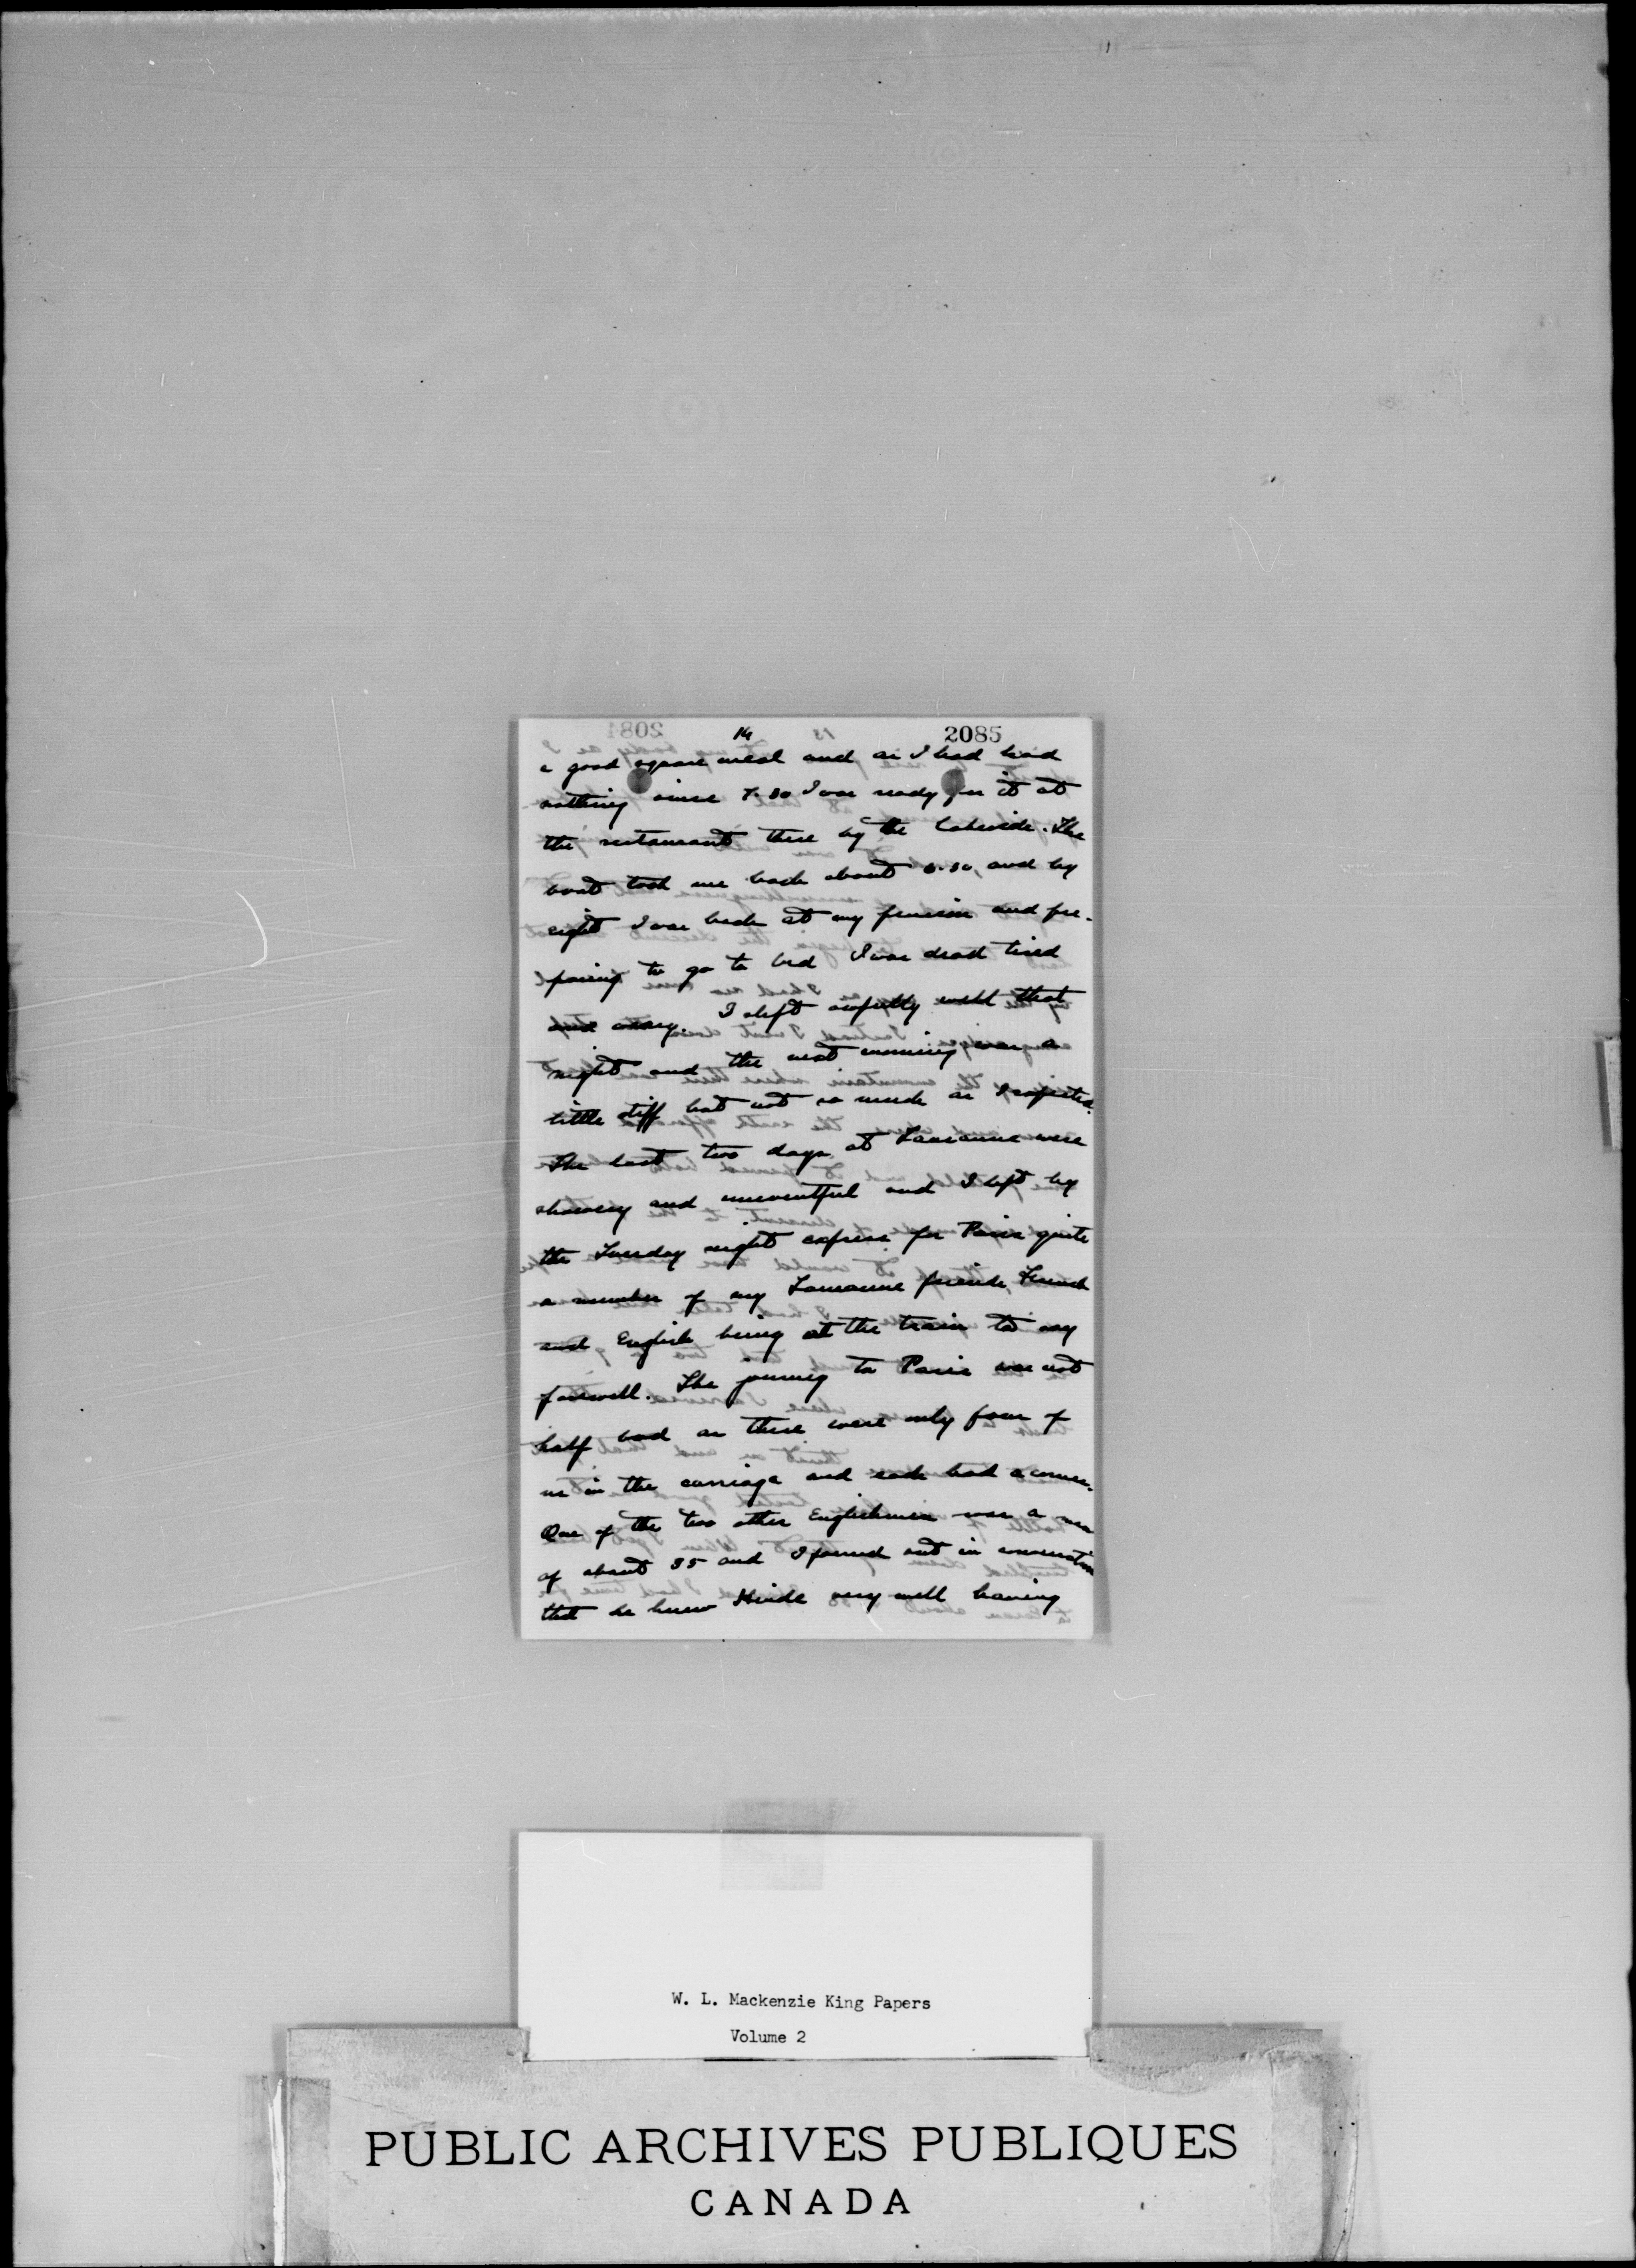 14
2085
a good square meal and as I had had
nothing since 7.30 I was ready for it at
the restaurant there by the Lakeside. The
boat took me back about 6.30, and by
eight I was back at my pension and pre-
paring to go to bed I was dead tired
I slept awfully well that
night and the next morning was a
little stiff but not so much as I expected.
The last two days at Lausanne were
showery and uneventful and I left by
the Tuesday night express for Paris quite
a number of my Lausanne friends, French
and English being at the train to say
farewell. The journey to Paris was not
half bad as there were only four of
us in the carriage and each had a corner.
One of the two other Englishmen was a man
of about 35 and I found out in conversation
that he knew Hinde very well having
W. L. Mackenzie King Papers
Volume 2
PUBLIC ARCHIVES PUBLIQUES
CANADA